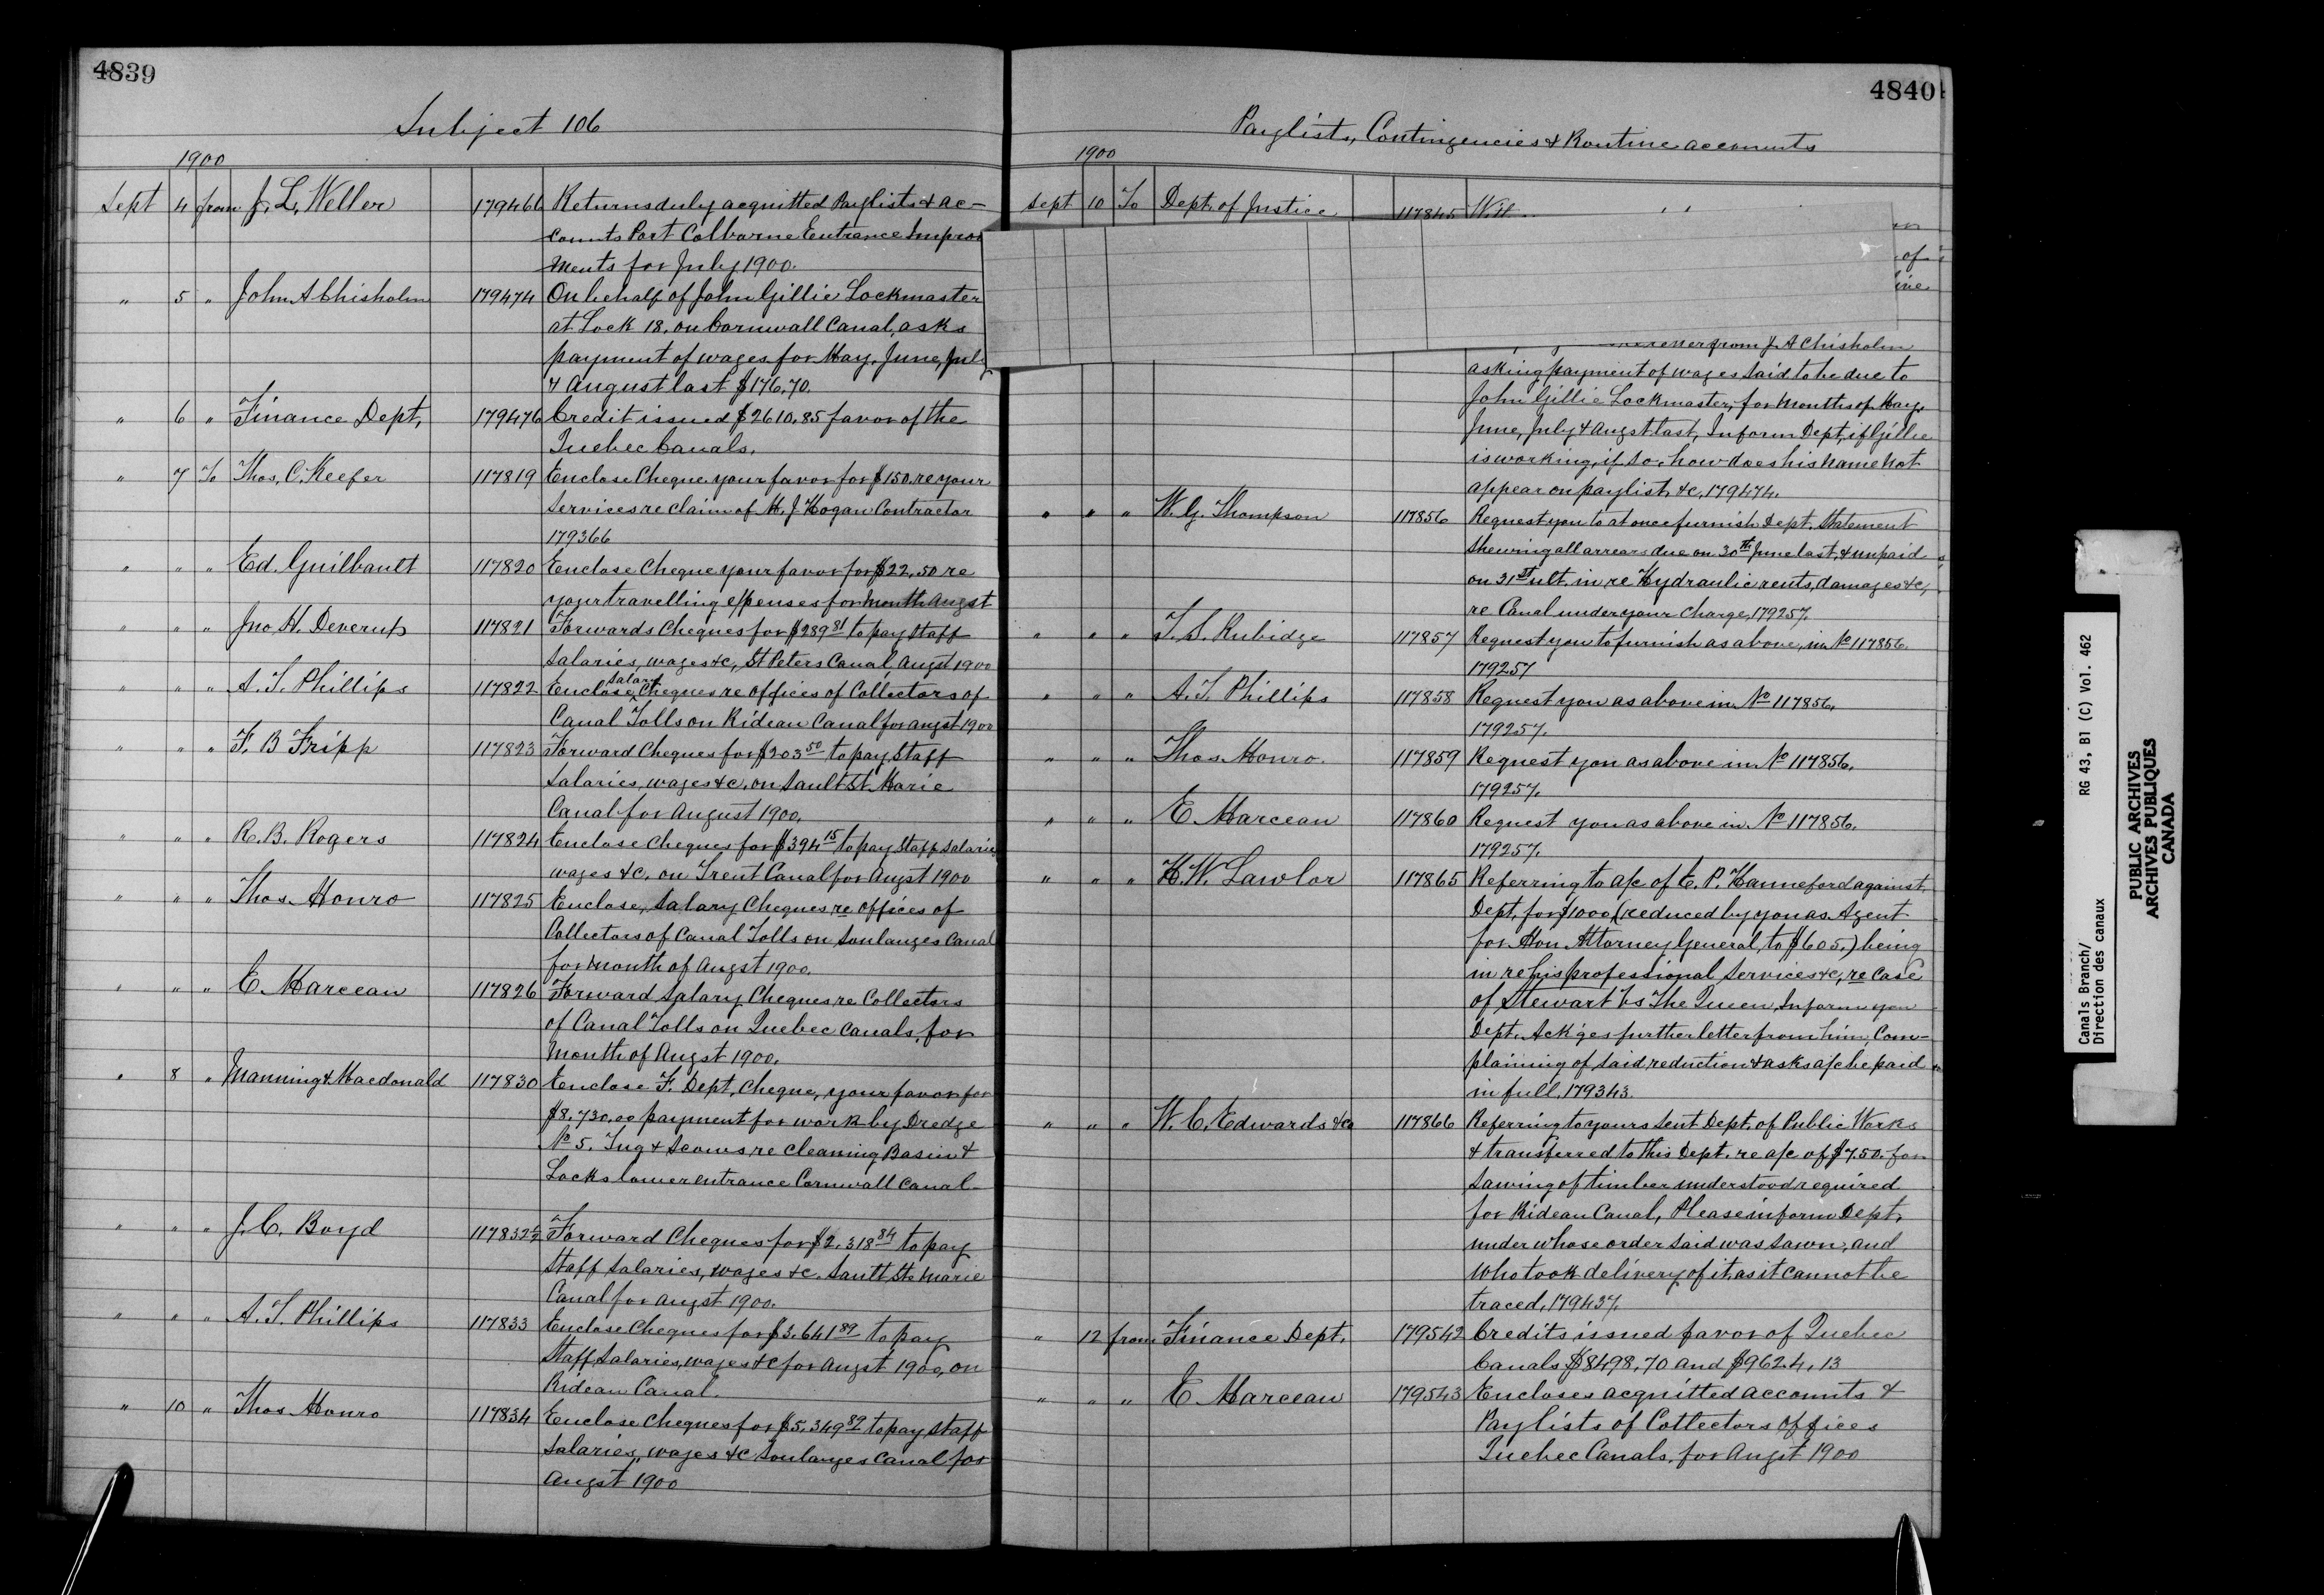 4839
Subject 106
1900
Sept 4 from J. L. Weller 179466 Returns duly acquitted Paylists & ac-
counts Port Colborne Entrance Improv
ments for July 1900.
" 5 " John A Chisholm 179474 On behalf of John Gillie Lockmaster
at Lock 18. on Cornwall Canal, asks
payment of wages for May, June, July
& August last $176.70.
" 6 " Finance Dept, 179476 Credit issued $2610.85 favor of the
Quebec Canals.
" 7 To Thos. C. Keefer 117819 Enclose Cheque your favor for $150. re your
services re claim of M. J. Hogan Contractor
179366
" " " Ed. Guilbault 117820 Enclose Cheque your favor for $22.50 re
your travelling expenses for month Augst
" " " Jno H. Deverup 117821 Forwards Cheques for $289 81 to pay staff
salaries, wages &c, St Peters Canal, Augst 1900
" " " A. T. Phillips 117822 Enclose Salary Cheques re offices of Collectors of
Canal Tolls on Rideau Canal for augst 1900
" " " F. B Fripp 117823 Forward Cheques for $203 50 to pay staff
salaries, wages &c, on Sault St. Marie
Canal for August 1900.
" " " R. B. Rogers 117824 Enclose Cheques for $394 15 to pay staff salaries
wages &c. on Trent Canal for Augst 1900
" " " Thos. Monro 117825 Enclose, Salary Cheques re offices of
Collectors of Canal Tolls on Soulanges Canal
for month of Augst 1900.
" " " E. Marceau 117826 Forward Salary Cheques re Collectors
of Canal Tolls on Quebec Canals, for
Month of Augst 1900.
" 8 " Manning & Macdonald 117830 Enclose F. Dept, Cheque, your favor for
$8,730.00 payment for work by Dredge
No 5. Tug & Scows re cleaning Basin &
Locks lower entrance Cornwall Canal
" " " J. C. Boyd 117832½ Forward Cheques for $2.318 84 to pay
staff salaries, wages &c. Sault Ste Marie
Canal for augst 1900.
" " " A. T. Phillips 117833 Enclose Cheques for $3.641 89 to pay
Staff, Salaries, wages &c for Augst 1900, on
Rideau Canal.
" 10 " Thos Monro 117834 Enclose Cheques for $5.349 89 to pay staff
salaries, wages &c Soulanges Canal for
Augst 1900
4840
Paylists, Contingencies & Routine accounts
1900
Sept 10 To Dept. of Justice 117845
of
from J. A Chisholm
asking payment of wages said to be due to
John Gillie Lockmaster, for months of May,
June, July & Augst last, Inform Dept, if Gillie
is working, if so, how does his name not
appear on paylist, &c, 179474.
" " " W. G. Thompson 117856 Request you to at once furnish Dept. Statement
shewing all arrears due on 30th June last, & unpaid
on 31st ult. in re Hydraulic rents, damages &c,
re Canal under your charge, 179257.
" " " T. S. Rubidge 117857 Request you to furnish as above, in No 117856.
179257
" " " A. T. Phillips 117858 Request you as above in No 117856.
179257.
" " " Thos. Monro. 117859 Request you as above in No 117856.
179257.
" " " E Marceau 117860 Request you as above in No 117856.
179257.
" " " H. W. Lawlor 117865 Referring to a/c of E. P. Hanneford against
Dept, for $1000, (reduced by you as Agent
for Hon Attorney General, to $605.) being
in re his professional services &c, re case
of Stewart Vs The Queen, Inform you
Dept. Ack'ges further letter from him, Com-
plaining of said reduction & asks a/c be paid
in full, 179343.
" " " W. C. Edwards &Co 117866 Referring to yours sent Dept. of Public Works
& transferred to this Dept. re a/c of $7.50. for
sawing of timber understood required
for Rideau Canal, Please inform Dept,
under whose order said was sawn, and
who took delivery of it, as it cannot be
traced, 179437.
" 12 from Finance Dept. 179542 Credits issued favor of Quebec
Canals $8498.70 and $9624.13
" " " E Marceau 179543 Encloses acquitted accounts &
Paylists of Collectors offices
Quebec Canals, for Augst 1900
Canals Branch/ RG 43, B1 (C) Vol. 462
Direction des canaux
PUBLIC ARCHIVES
ARCHIVES PUBLIQUES
CANADA